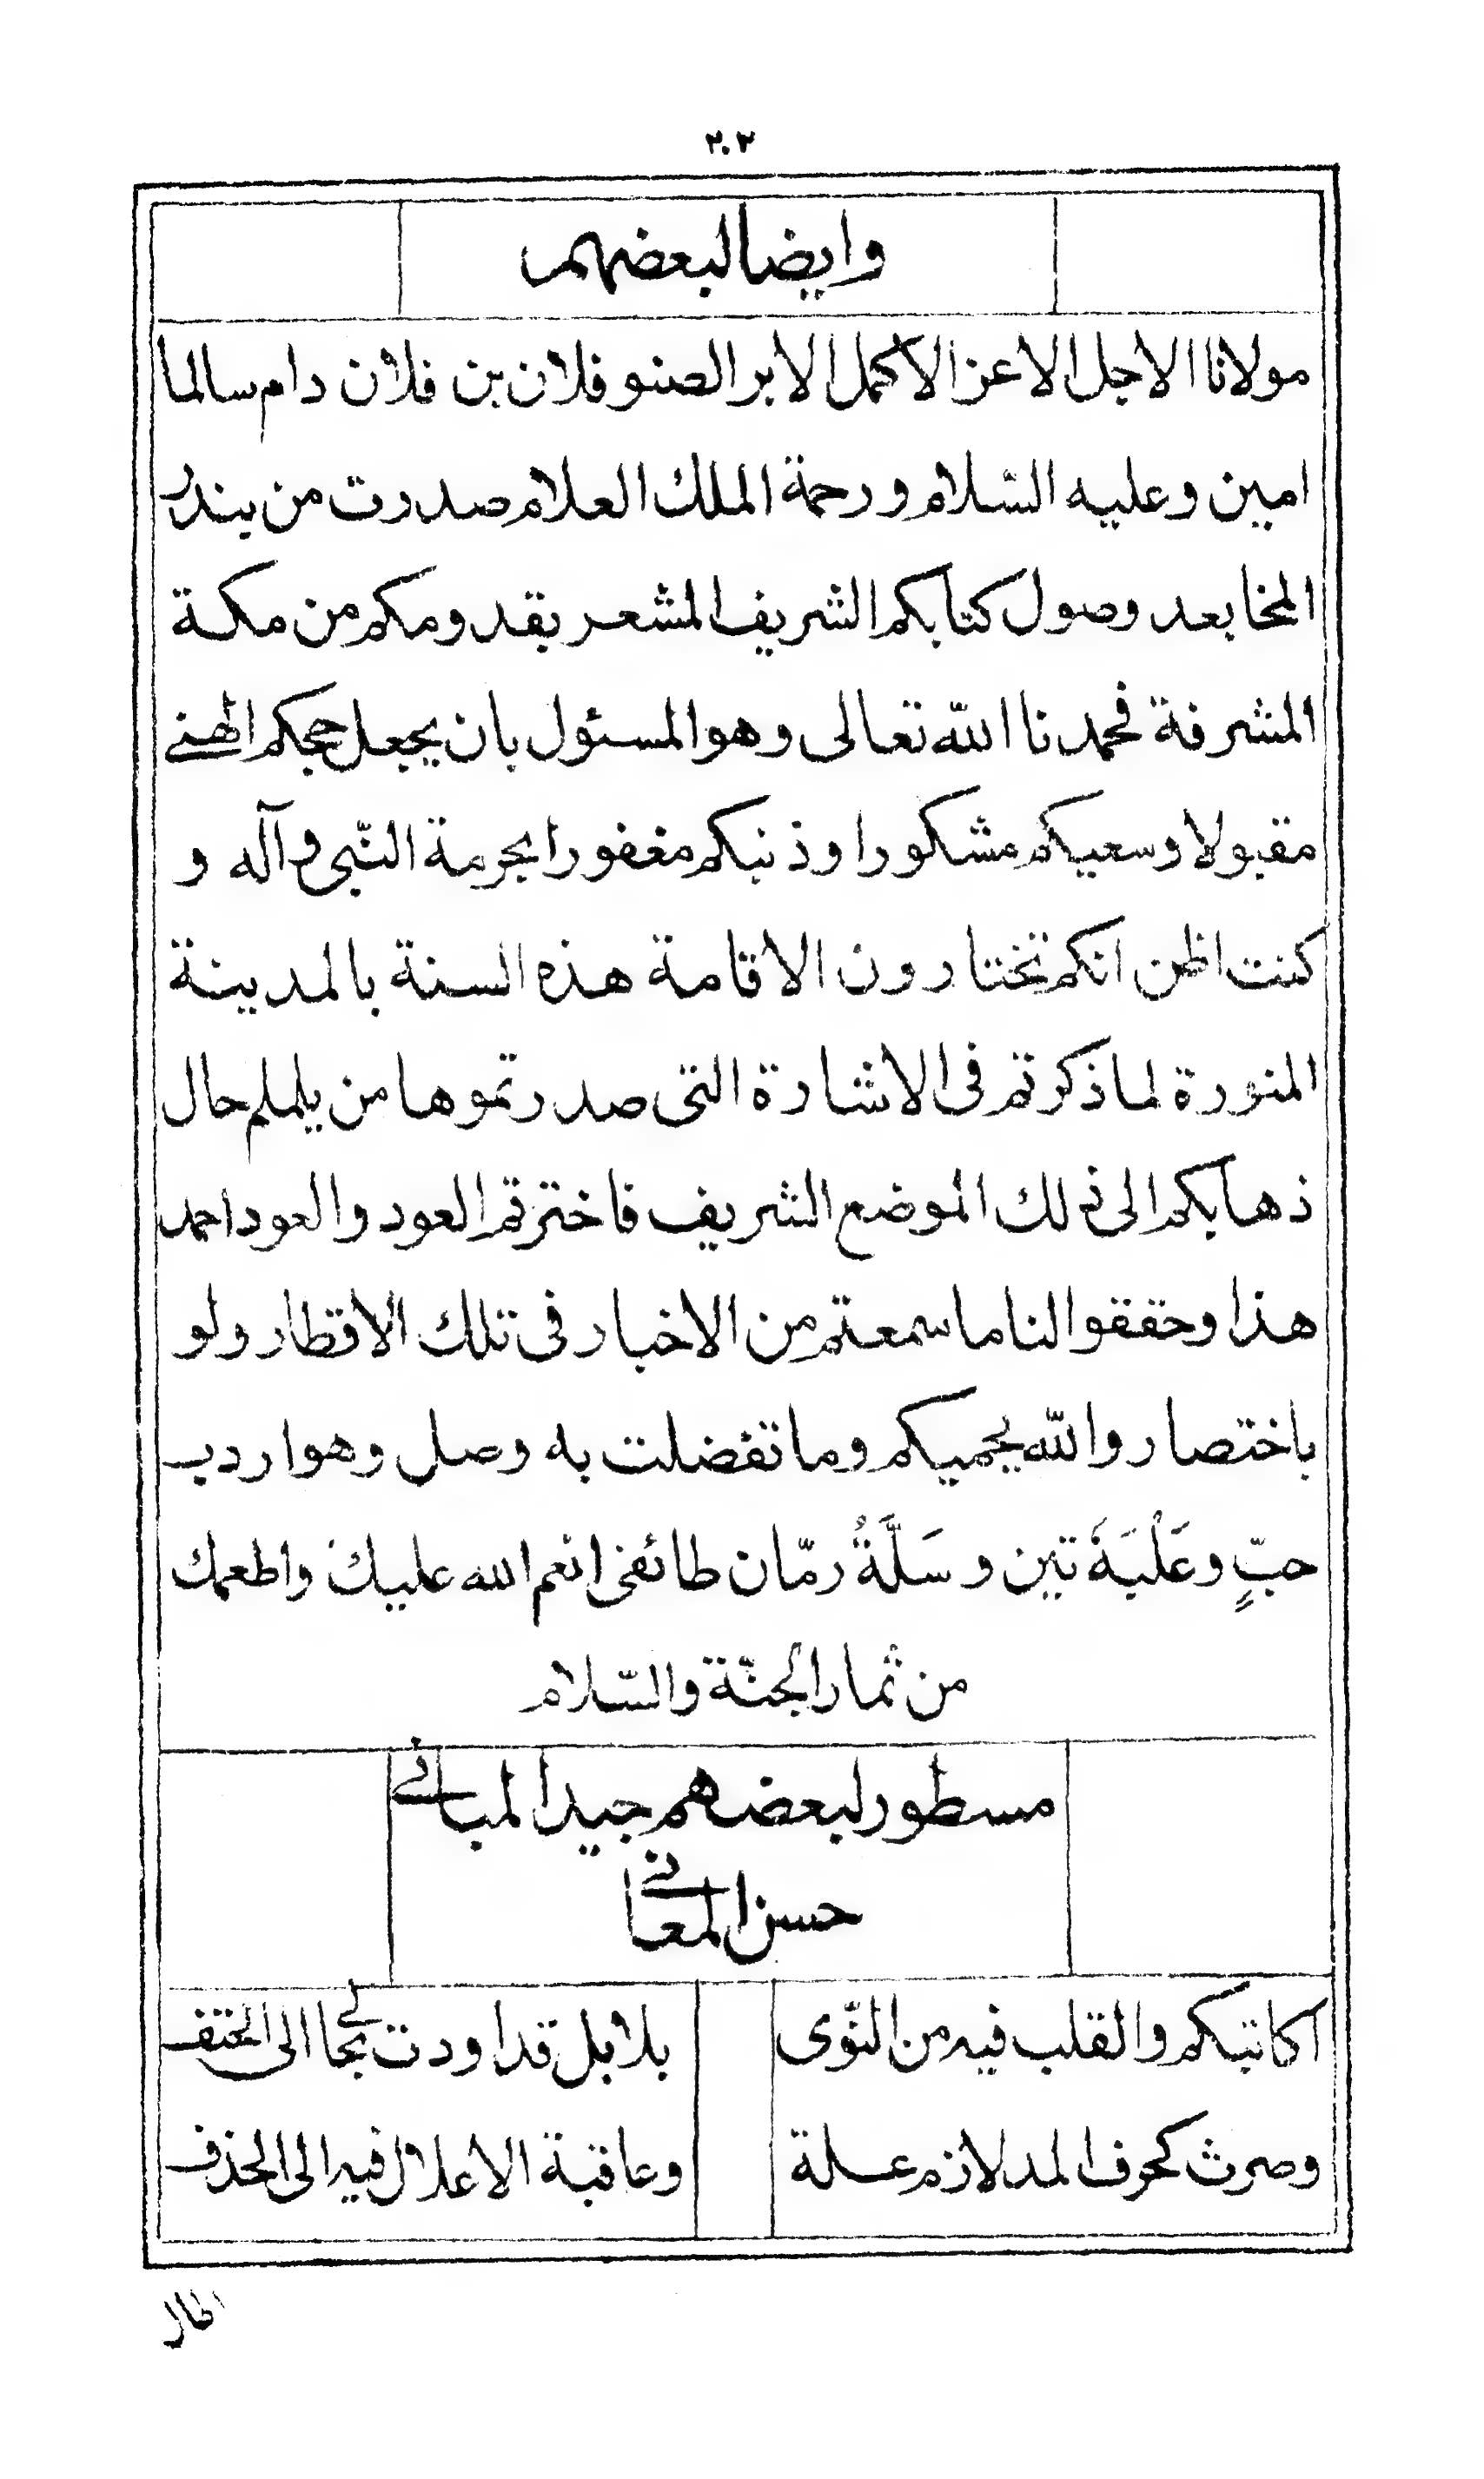 ٢٠٣
وايضا لبعضهم
مولانا الاجل الاعز الاكمل الابر الصنو فلان بن فلان دام سالما
امين وعليه السّلام ورحمة الملك العلام صدرت من بندر
المخا بعد وصول كتابكم الشريف المشعر بقدومكم من مكة
المشرفة فحمدنا اللّه تعالى وهو المسئول بان يجعل حجكم الهنى
مقبولا وسعيكم مشكورا وذنبكم مغفورا بحرمة النّبى وآله و
كنت اظن انكم تختارون الاقامة هذه السنة بالمدينة
المنورة لما ذكرتم فى الاشارة التى صدرتموها من يلملم حال
ذهابكم الى ذلك الموضع الشريف فاخترتم العود والعود احمد
هذا وحققوا لنا ما سمعتم من الاخبار فى تلك الاقطار ولو
باختصار واللّه يحميكم وما تفضلت به وصل وهو اردب
حبٍّ وعَلْبَة تين وسَلَّةُ رمّان طائفى انعم الله عليك واطعمك
من ثمار الجنّة والسّلام
مسطور لبعضهم جيد المبانى
حسن المعانى
اكاتبكم والقلب فيه من النّوى	بلابل قد اودت بحالى الى الحتف
وصرت كحرف المد لازم علة	وعاقبة الاعلال فيه الى الحذف